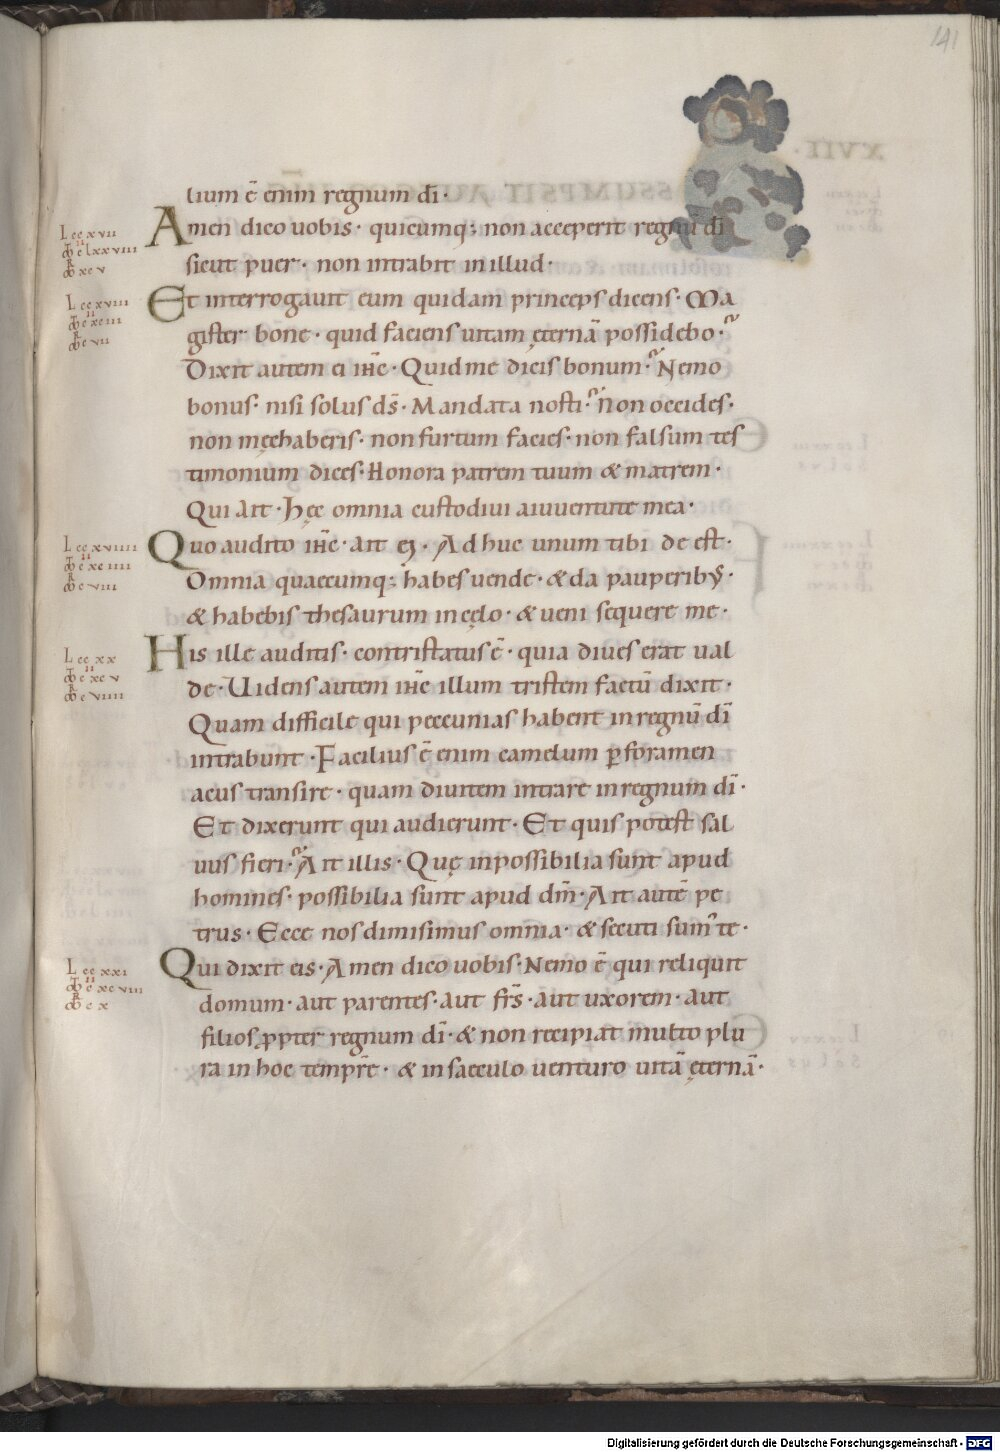 141
lium ē enim regnum dī·
Amen dico uobis· quicumq; non acceperit regnū dī
sicut puer· non intrabit in illud·
Et interrogauit eum quidam princeps dicens· Ma
gister bone· quid faciens uitam ęternā possidebo·
Dixit autem ei ihē· Quid me dicis bonum· Nemo
bonus· nisi solus dś· Mandata nosti· Non occides·
non męchaberis· non furtum facies· non falsum tes
timonium dices· Honora patrem tuum & matrem·
Qui ait· Hęc omnia custodiui a iuuentute mea·
Quo audito ihē· ait ei· Adhuc unum tibi de est·
Omnia quaecumq; habes uende· & da pauperib;·
& habebis thesaurum in cęlo· & ueni sequere me·
His ille auditis· contristatus ē· quia diues erat ual
de· Uidens autem ihē illum tristem factū dixit·
Quam difficile qui peccunias habent in regnū dī
intrabunt· Facilius ē enim camelum ꝑ foramen
acus transire· quam diuitem intrare in regnum dī·
Et dixerunt qui audierunt· Et quis potest sal
uus fieri· Ait illis· Quę inpossibilia sunt apud
homines· possibilia sunt apud dm̄· Ait autē pe
trus· Ecce nos dimisimus omnia· & secuti sum' te·
Qui dixit eis· Amen dico uobis· Nemo ē qui reliquit
domum· aut parentes· aut frs̄· aut uxorem· aut
filios ꝓpter regnum dī· & non recipiat multo plu
ra in hoc temprē· & in saeculo uenturo uitā ęternā·
Lc cxvii
Lc cxviii
Lc cxviiii
Lc cxx
Lc cxxi
Digitalisierung gefördert durch die Deutsche Forschungsgemeinschaft - DFG